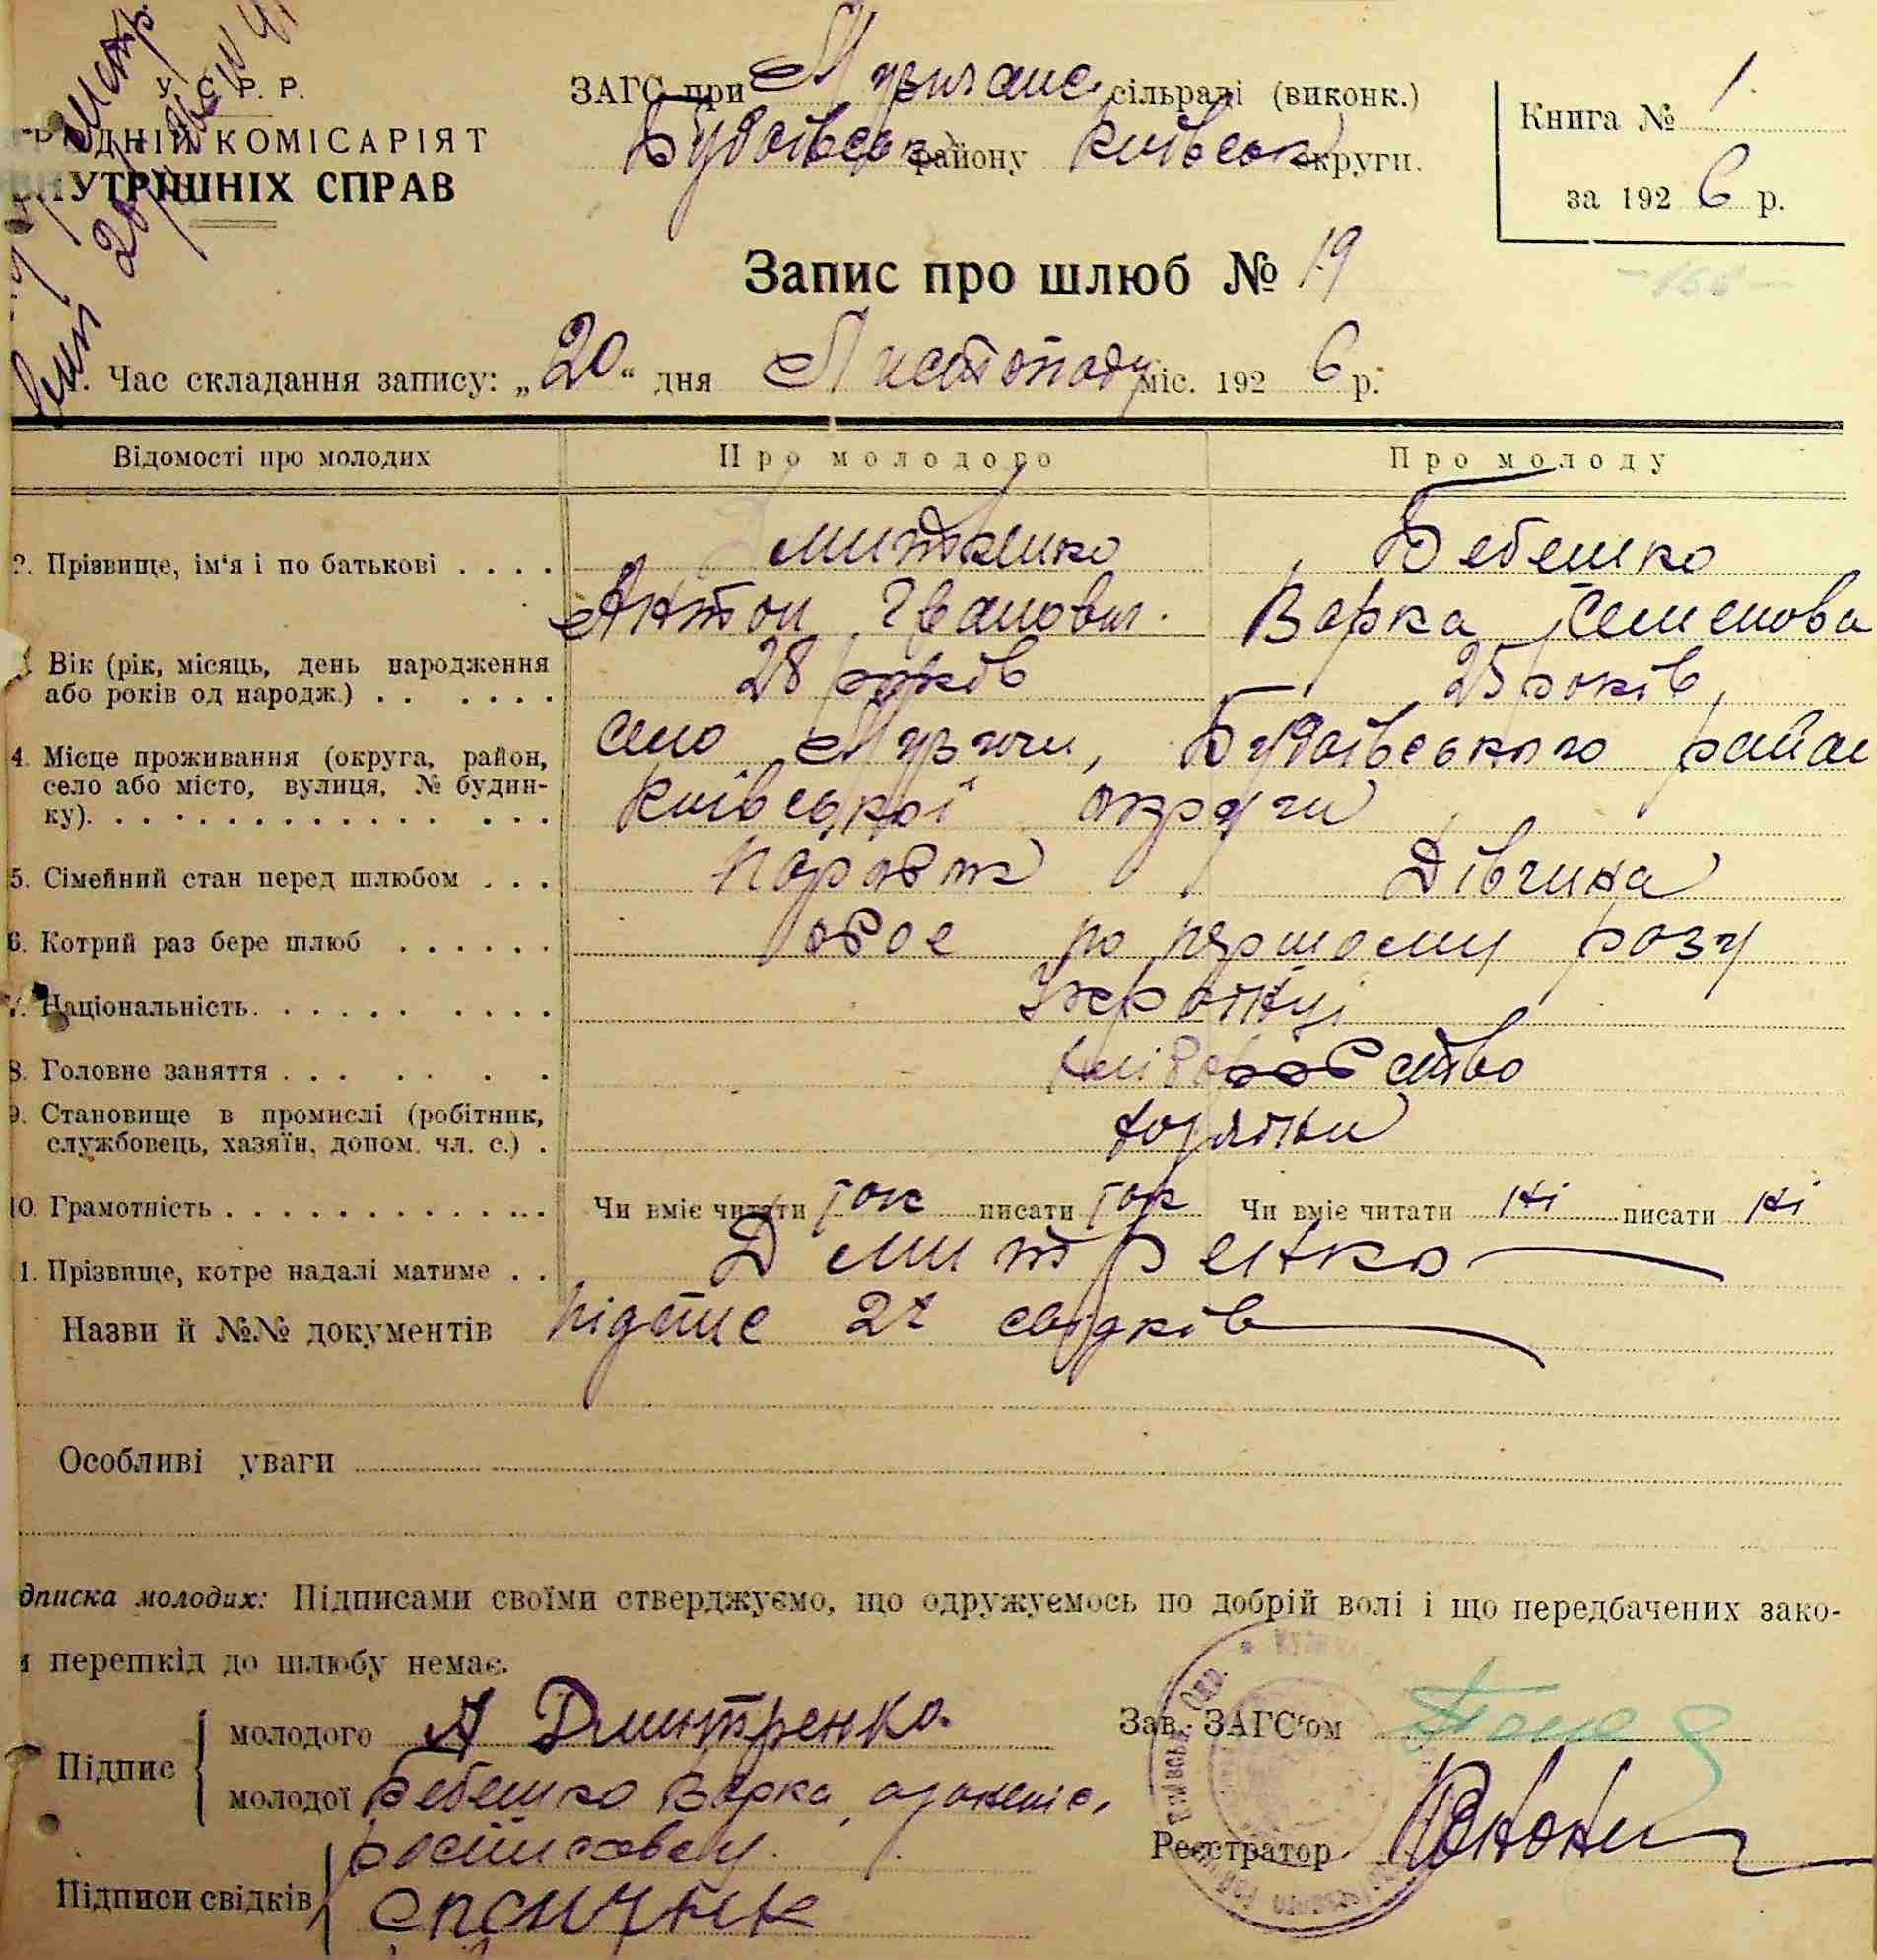 У. С. Р. Р.
КОМІСАРІЯТ
ВНУТРІШНІХ СПРАВ
ЗАГС при Музичанс. сільраді (виконк.)
Будаївськ району Київськ округи.
Книга № 1.
за 1926 р.
Запис про шлюб № 19
Час складання запису: „20“ дня Листопаду міс. 1926 р.
Відомості про молодих Про молодого Про молоду
2. Прізвище, ім'я і по батькові . . . . Бебешко
Антон Іванович. Варка Семенова
Вік (рік, місяць, день народження
або років од народж.) . . . . . . 28 років 25 років,
4. Місце проживання (округа, район, село Музичи, Будаївського район
село або місто, вулиця, № будин-
ку). . . . . . . . . . . . . . . . Київської округи
5. Сімейний стан перед шлюбом . . . Паробок Дівчина
6. Котрий раз бере шлюб . . . . . . обое по першому разу
7. Національність. . . . . . . . . . . Українці
8. Головне заняття . . . . . . . хліборобство
9. Становище в промислі (робітник,
службовець, хазяїн, допом. чл. с.) . хозяїни
10. Грамотність . . . . . . . . . . . . . Чи вміє читати так писати так Чи вміє читати ні писати ні
11. Прізвище, котре надалі матиме . . Дмитренко
Назви й №№ документів підпис 2х свідків
Особливі уваги
дписка молодих: Підписами своїми стверджуємо, що одружуємось по добрій волі і що передбачених зако-
перешкід до шлюбу немає.
Підпис
молодого А Дмитренко.
молодої Бебешко Варка,
Зав. ЗАГС'ом
Реєстратор
Підписи свідків